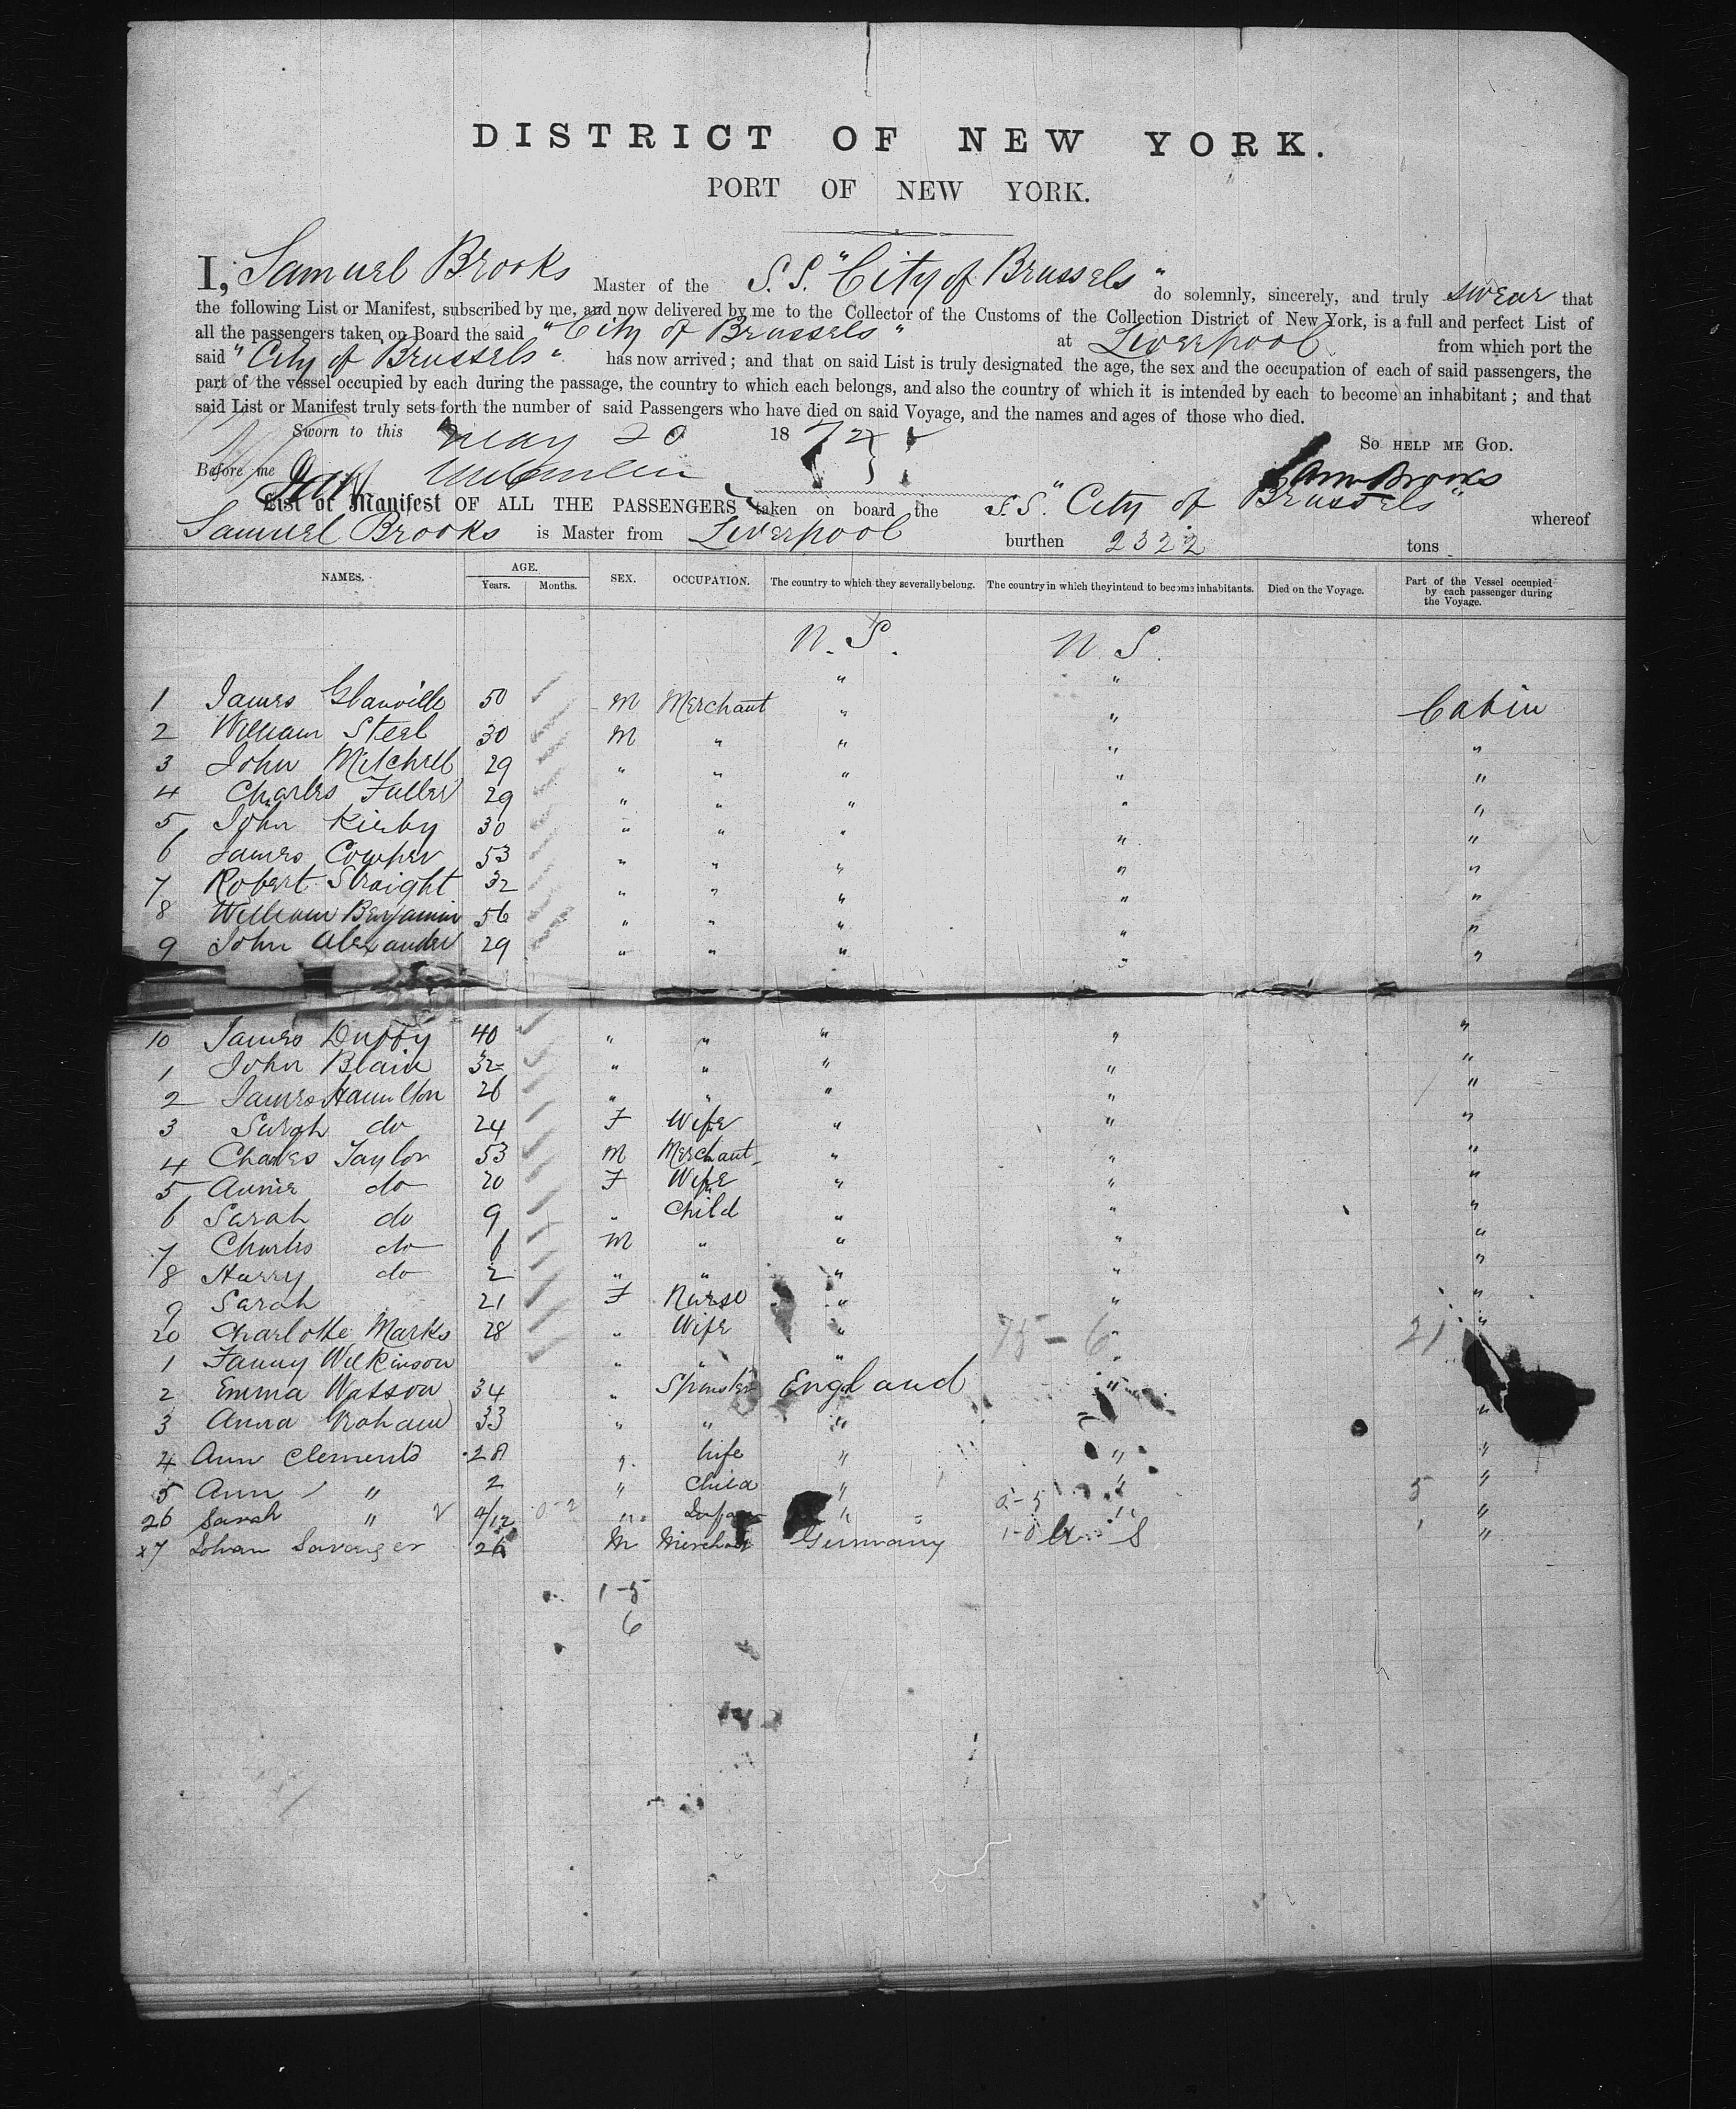 DISTRICT OF NEW YORK.
PORT OF NEW YORK.
I, Samuel Brooks Master of the S.S. "City of Brussels" do solemnly, sincerely, and truly swear that
the following List or Manifest, subscribed by me, and now delivered by me to the Collector of the Customs of the Collection District of New York, is a full and perfect List of
all the passengers taken on Board the said "City of Brussels" at Liverpool from which port the
said "City of Brussels" has now arrived; and that on said List is truly designated the age, the sex and the occupation of each of said passengers, the
part of the vessel occupied by each during the passage, the country to which each belongs, and also the country of which it is intended by each to become an inhabitant; and that
said List or Manifest truly sets forth the number of said Passengers who have died on said Voyage, and the names and ages of those who died.
Sworn to this May 20 187 So HELP ME GOD.
Before me Sam Brooks
List or Manifest OF ALL THE PASSENGERS taken on board the S.S. "City of Brussels" whereof
Samuel Brooks is Master from Liverpool burthen 2322 tons
NAMES. AGE. Years. Months. SEX. OCCUPATION. The country to which they severally belong. The country in which they intend to become inhabitants. Died on the Voyage. Part of the Vessel occupied by each passenger during the Voyage.
" "
1 James Glanville 50 M Merchant " " Cabin
2 William Steel 30 M " " " "
3 John Mitchell 29 " " " " "
4 Charles Fuller 29 " " " " "
5 John Kirby 30 " " " " "
6 James Cowper 53 " " " " "
7 Robert Straight 32 " " " " "
8 William Benjamin 56 " " " " "
9 John Alexander 29 " " " " "
10 James Duffy 40 " " " " "
1 John Blain 32 " " " " "
2 James Hamilton 26 " " " " "
3 Sarah do 24 F Wife " " "
4 Charles Taylor 53 M Merchant " " "
5 Annie do 20 F Wife " " "
6 Sarah do 9 " Child " " "
7 Charles do 6 M " " " "
8 Harry do 2 " " " " "
9 Sarah 21 F Nurse " " "
20 Charlotte Marks 28 " Wife " 75-6 " 21 "
1 Fanny Wilkinson " " " "
2 Emma Watson 34 " Spinster England " "
3 Anna Graham 33 " " " "
4 Ann Clements 28 " Wife " " "
5 Ann " 2 " Child " " "
26 Sarah " 4/12 0-2 " Infant " 0-5 " 5 "
27 26 M Merchant Germany 1-0 U S 1 "
1-5
6